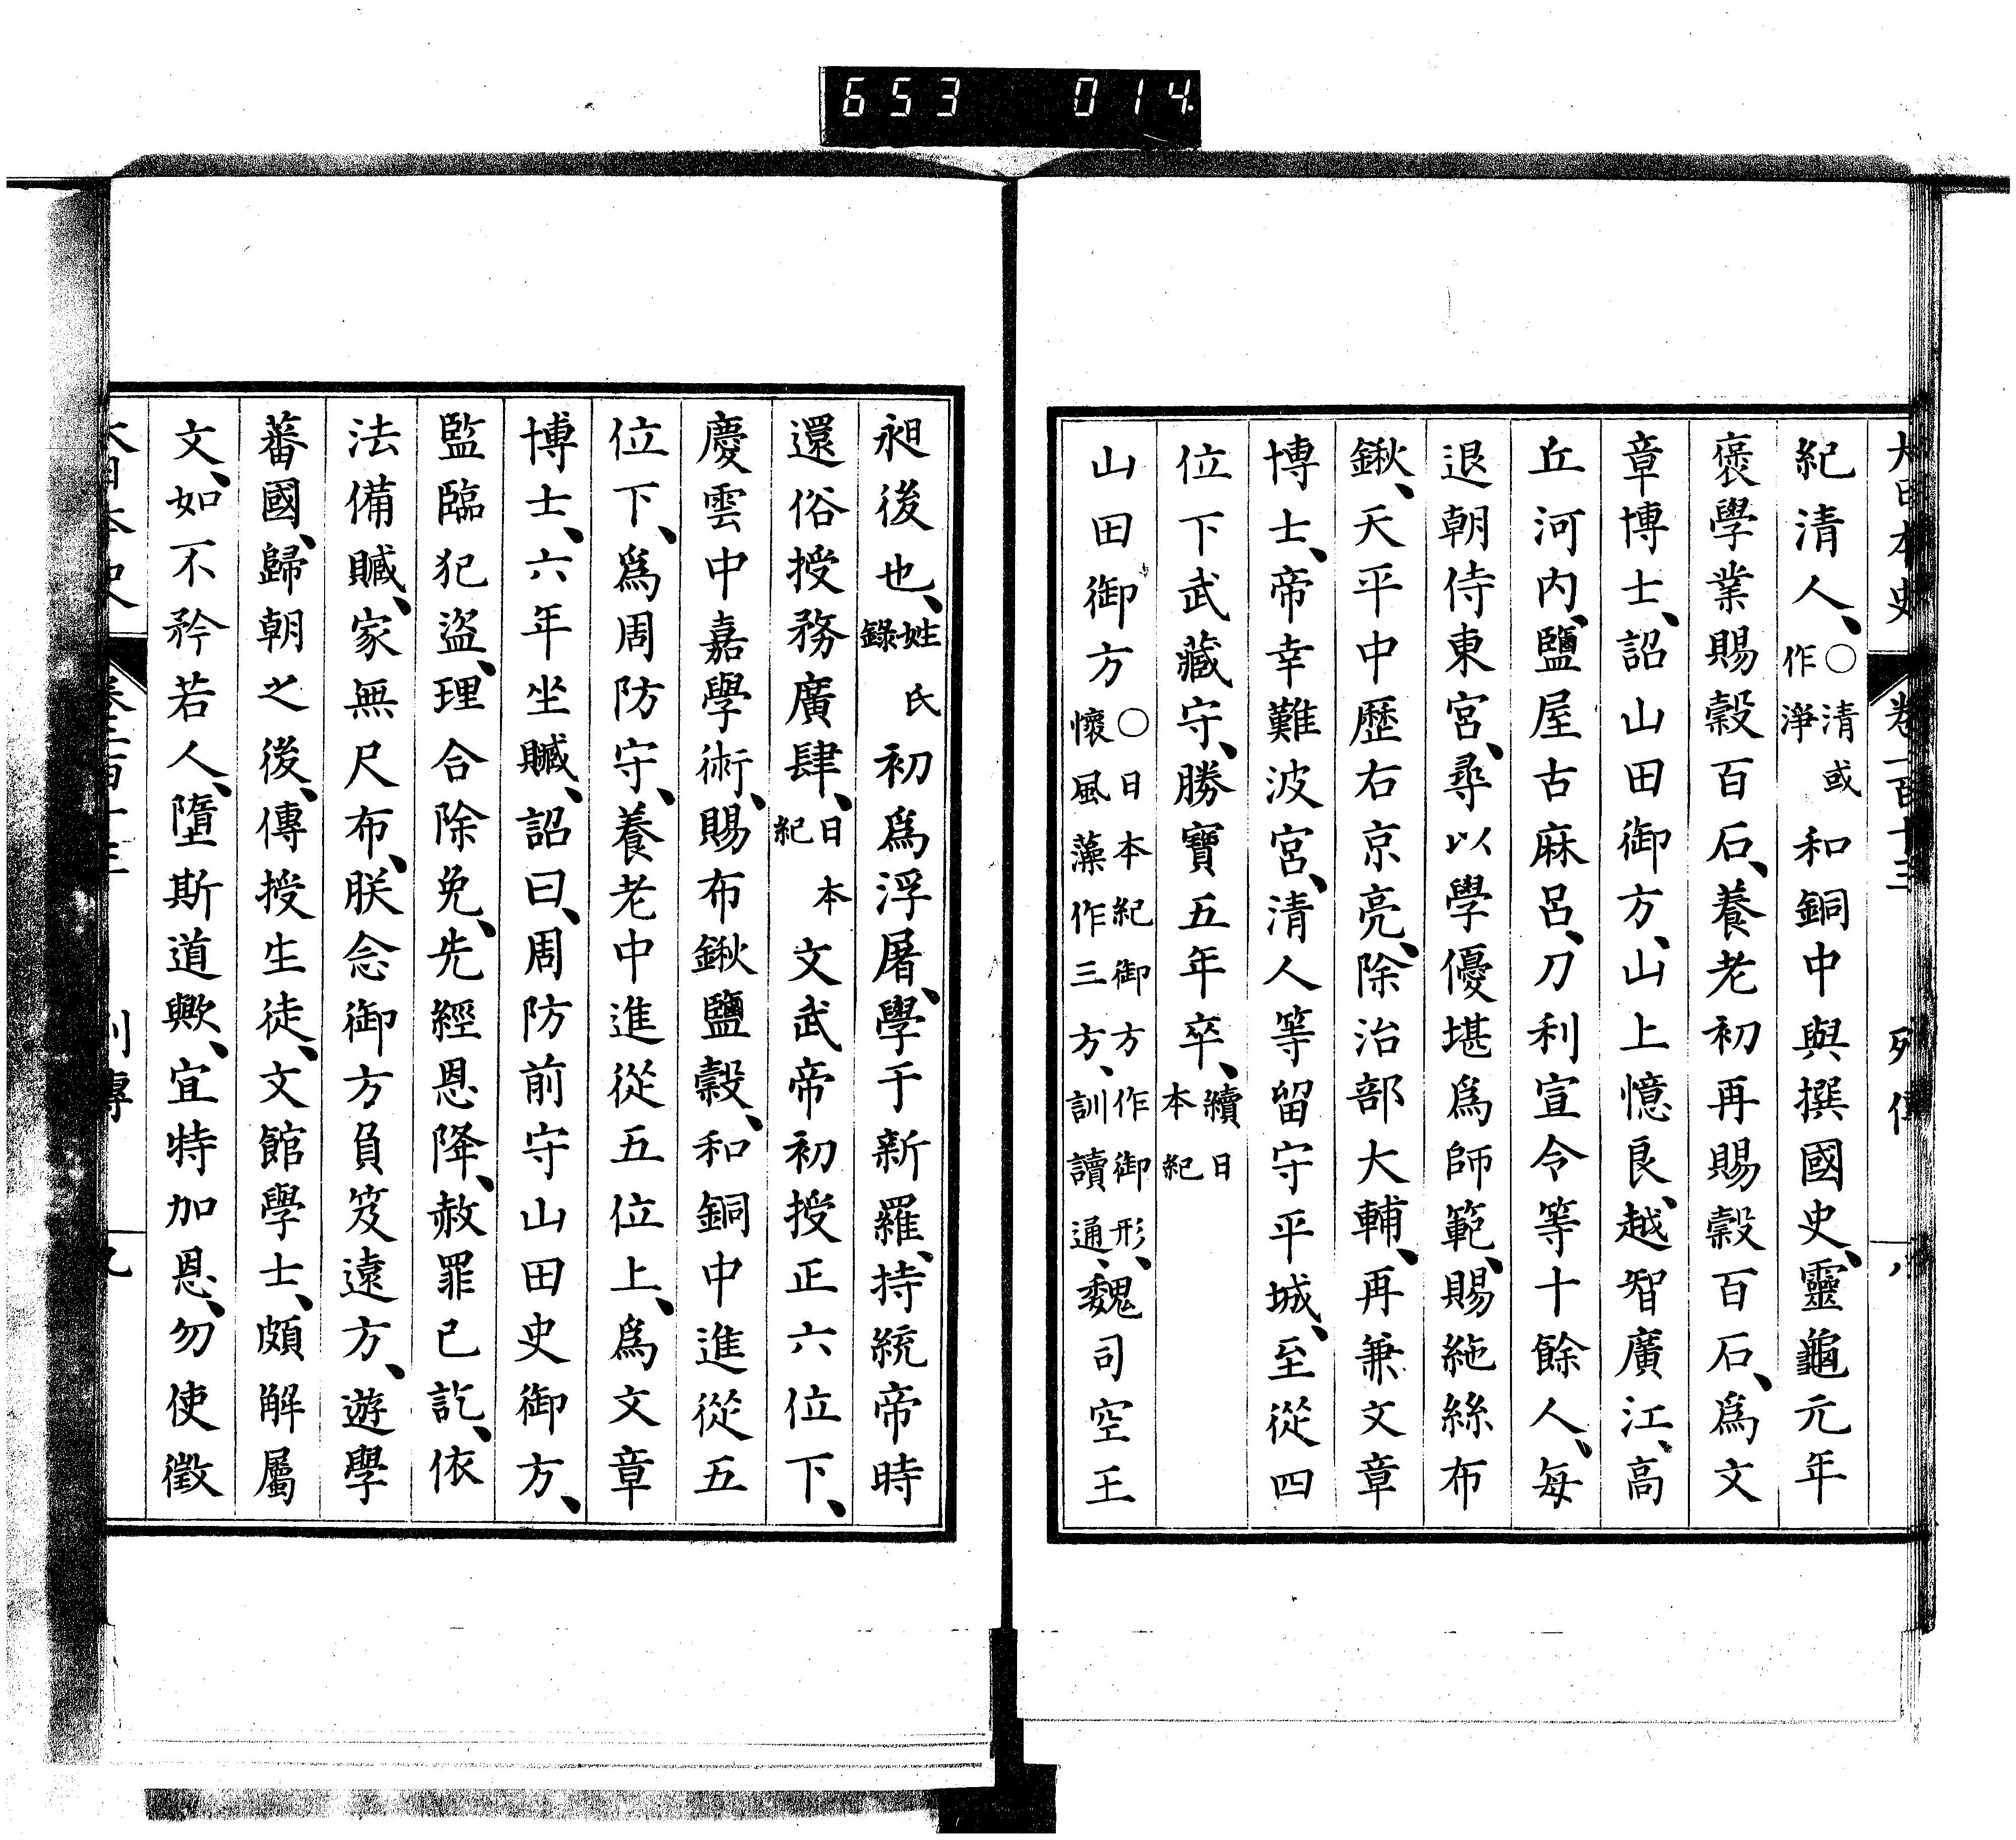 653 014
大日本史 卷二百十三 列傳 八
紀清人、○清或作淨和銅中與撰國史、靈龜元年
襃學業賜穀百石、養老初再賜穀百石、爲文
章博士、詔山田御方、山上憶良、越智廣江、高
丘河内、鹽屋古麻呂、刀利宣令等十餘人、每
退朝侍東宮、尋以學優堪爲師範、賜絁絲布
鍬、天平中歷右京亮、除治部大輔、再兼文章
博士、帝幸難波宮、清人等留守平城、至從四
位下武藏守、勝寶五年卒、續日本紀
山田御方○日本紀御方作御形、懷風藻作三方、訓讀通、魏司空王
昶後也、姓氏錄初爲浮屠、學于新羅、持統帝時
還俗授務廣肆、日本紀文武帝初授正六位下、
慶雲中嘉學術、賜布鍬鹽穀、和銅中進從五
位下、爲周防守、養老中進從五位上、爲文章
博士、六年坐贓、詔曰、周防前守山田史御方、
監臨犯盜、理合除免、先經恩降、赦罪已訖、依
法備贓、家無尺布、朕念御方負笈遠方、遊學
蕃國、歸朝之後、傳授生徒、文館學士、頗解屬
文、如不矜若人、墮斯道歟、宜特加恩、勿使徵
大日本史 卷二百十三 列傳 九